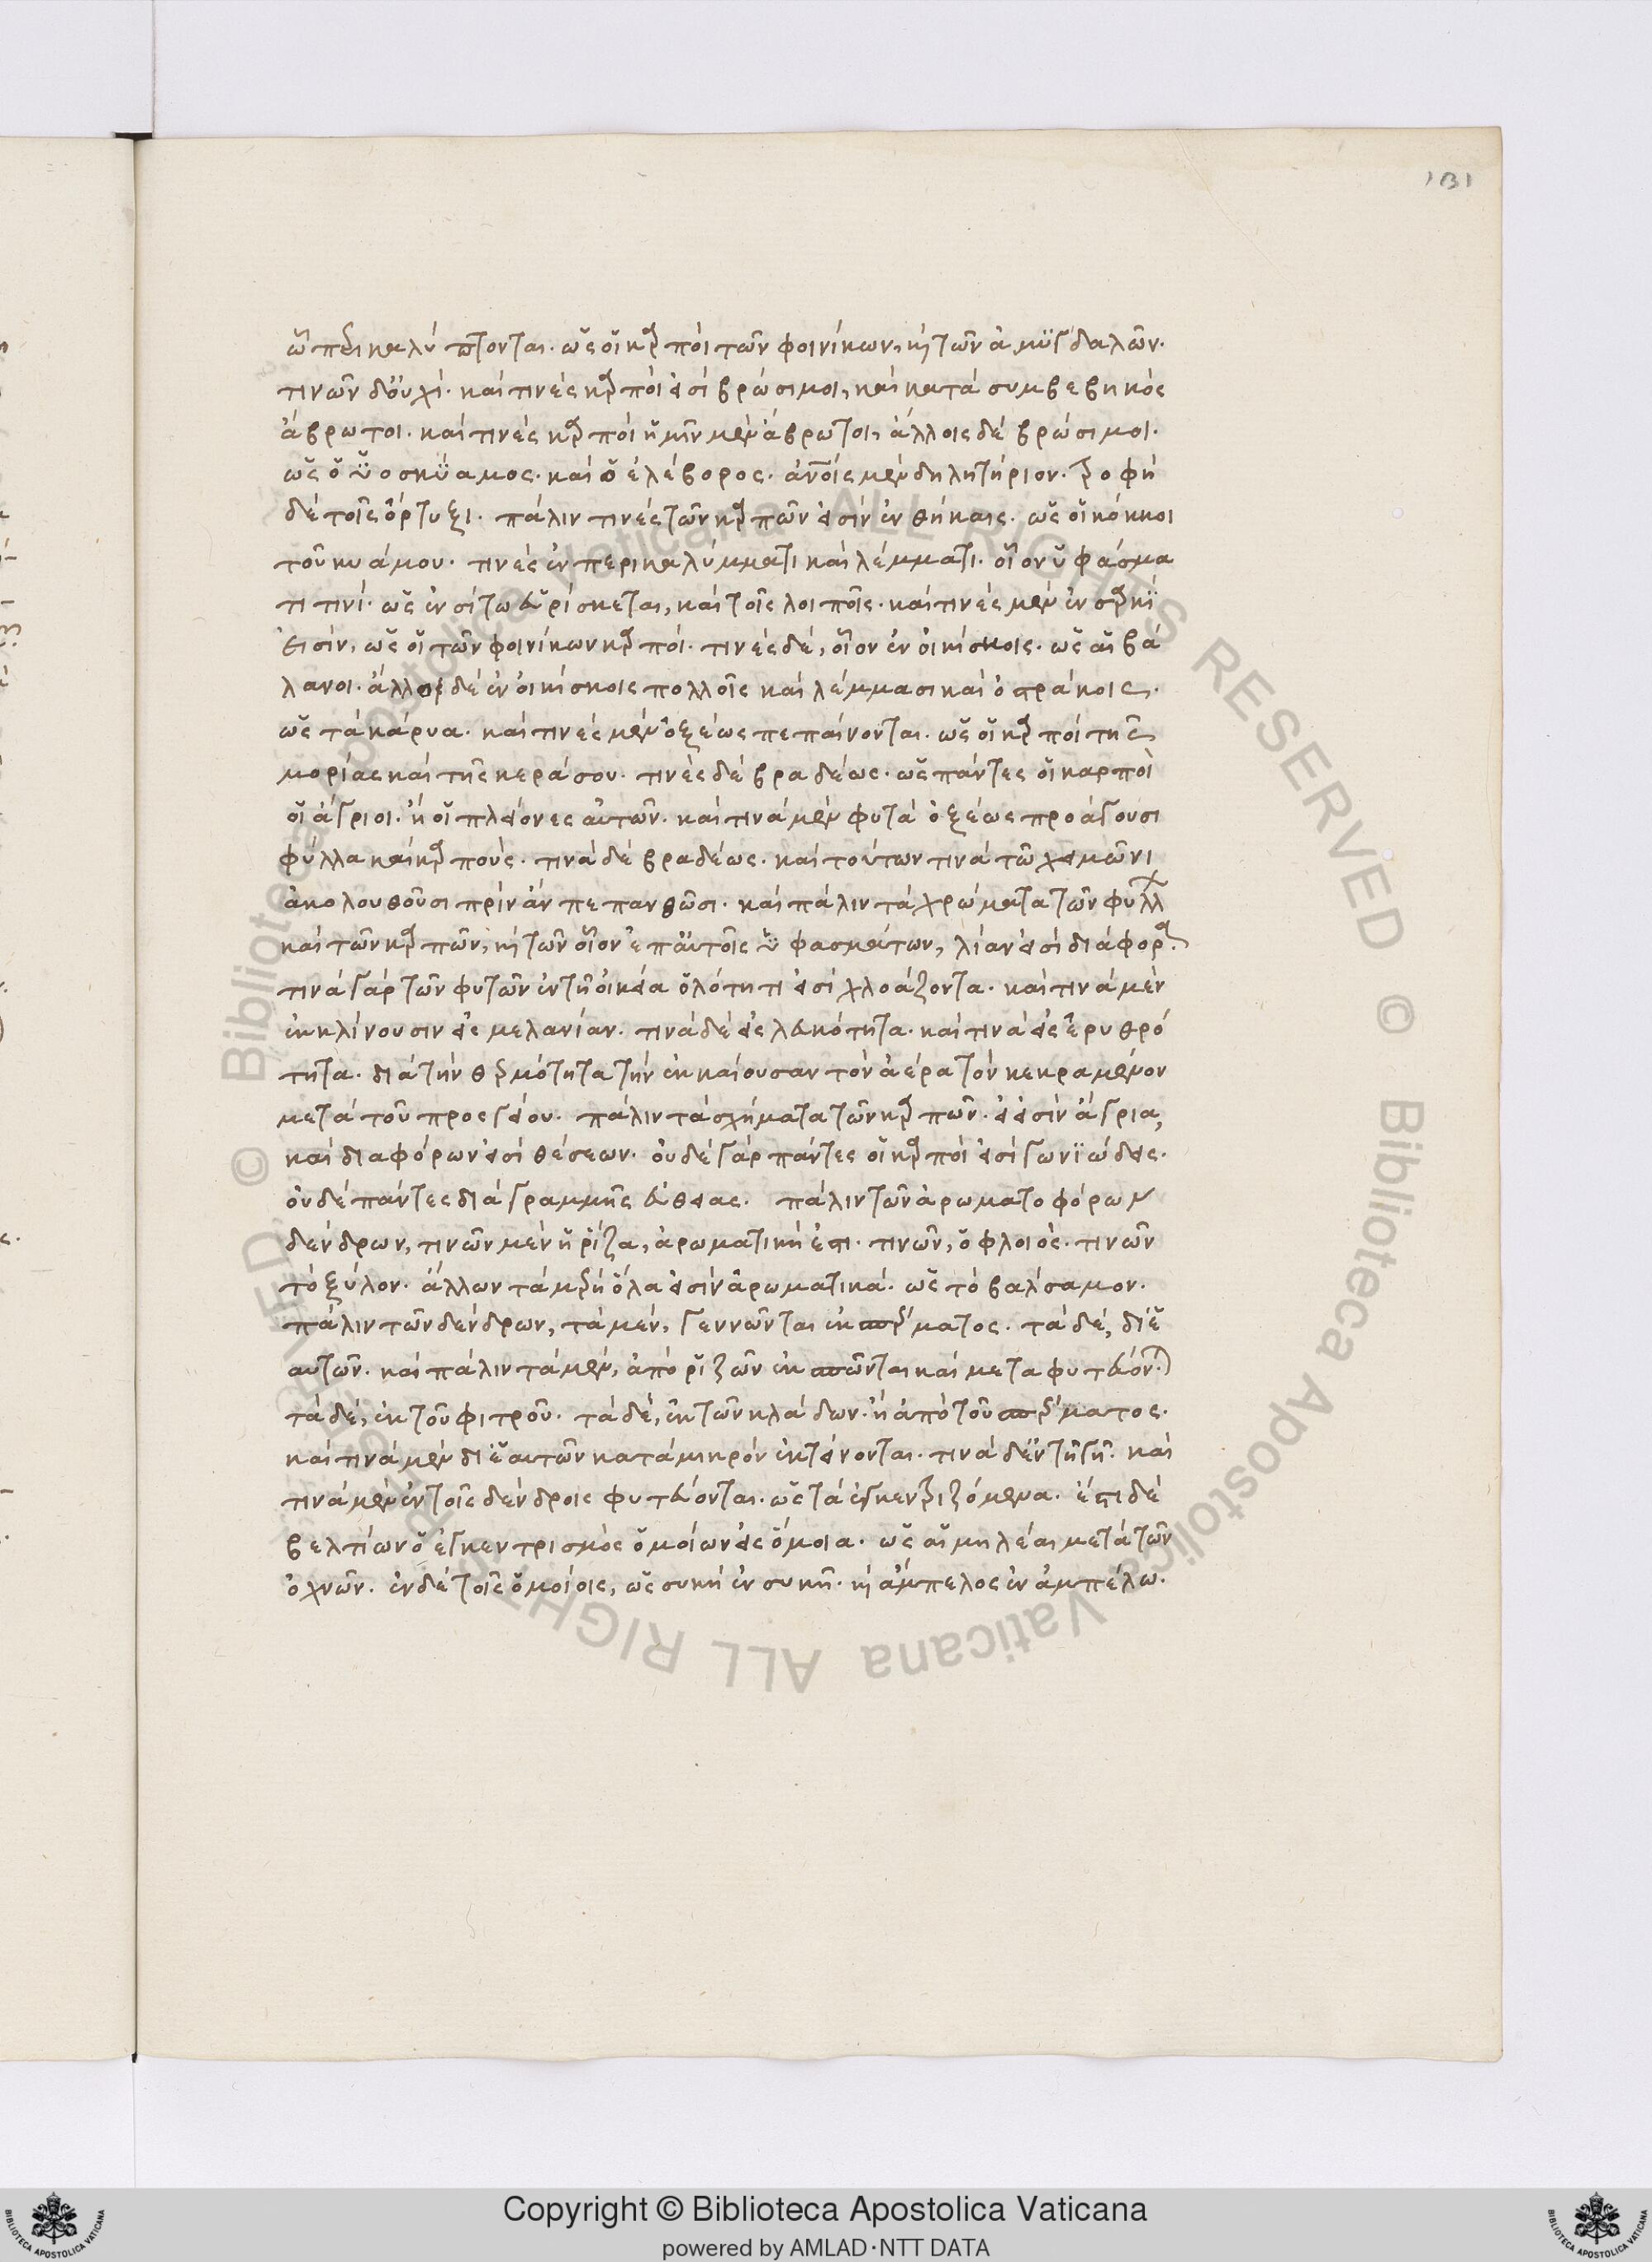 131
ᾧ περικαλύπτονται. ὡς οἱ καρποὶ τῶν φοινίκων, καὶ τῶν ἀμυγδαλῶν.
τινῶν δ' οὐχί. καὶ τινὲς καρποὶ εἰσὶ βρώσιμοι, καὶ κατὰ συμβεβηκὸς
ἄβρωτοι. καὶ τινὲς καρποὶ ἡμῖν μὲν ἄβρωτοι, ἄλλοις δὲ βρώσιμοι.
ὡς ὁ ὑοσκύαμος. καὶ ὁ ἐλέβορος. ἀνοις μὲν δηλητήριον. τροφὴ
δὲ τοῖς ὄρτυξι. πάλιν τινὲς τῶν καρπῶν εἰσὶν ἐν θήκαις. ὡς οἱ κόκκοι
τοῦ κυάμου. τινὲς ἐν περικαλύμματι καὶ λέμματι. οἷον ὑφάσμα
τι τινί. ὡς ἐν σίτω εὑρίσκεται, καὶ τοῖς λοιποῖς. καὶ τινὲς μὲν ἐν σαρκὶ
εἰσὶν, ὡς οἱ τῶν φοινίκων καρποί. τινὲς δὲ, οἷον ἐν οἰκίσκοις. ὡς αἱ βά
λανοι. ἄλλοι δὲ ἐν οἰκίσκοις πολλοῖς καὶ λέμμασι καὶ ὀστράκοις.
ὡς τὰ κάρυα. καὶ τινὲς μὲν ὀξέως πεπαίνονται. ὡς οἱ καρποὶ τῆς
μορίας καὶ τῆς κεράσου. τινὲς δὲ βραδέως. ὡς πάντες οἱ καρποὶ
οἱ ἄγριοι. ἢ οἱ πλείονες αὐτῶν. καὶ τινὰ μὲν φυτὰ ὀξέως προάγουσι
φύλλα καὶ καρπούς. τινὰ δὲ βραδέως. καὶ τούτων τινὰ τῶ χειμῶνι
ἀκολουθοῦσι πρὶν ἂν πεπανθῶσι. καὶ πάλιν τὰ χρώματα τῶν φύλλ
καὶ τῶν καρπῶν, καὶ τῶν οἷον ἐπ' αὐτοῖς ὑφασμάτων, λίαν εἰσὶ διάφορα.
τινὰ γὰρ τῶν φυτῶν ἐν τῇ οἰκεία ὁλότητι εἰσὶ χλοάζοντα. καὶ τινὰ μὲν
ἐκκλίνουσιν εἰς μελανίαν. τινὰ δὲ εἰς λευκότητα. καὶ τινὰ εἰς ἐρυθρό
τητα. διὰ τὴν θερμότητα τὴν ἐκκαίουσαν τὸν ἀέρα τὸν κεκραμένον
μετὰ τοῦ προσγείου. πάλιν τὰ σχήματα τῶν καρπῶν. εἰ εἰσὶν ἄγρια,
καὶ διαφόρων εἰσὶ θέσεων. οὐδὲ γὰρ πάντες οἱ καρποὶ εἰσὶ γωνιώδεις.
οὐδὲ πάντες διὰ γραμμῆς εὐθείας. πάλιν τῶν ἀρωματοφόρων
δένδρων, τινῶν μὲν ἡ ῥίζα, ἀρωματική ἐστι. τινῶν, ὁ φλοιός. τινῶν
τὸ ξύλον. ἄλλων τὰ μέρη ὅλα εἰσὶν ἀρωματικά. ὡς τὸ βαλσαμον.
πάλιν τῶν δένδρων, τὰ μὲν, γεννῶνται ἐκ σπέρματος. τὰ δὲ, δι' ἑ
αυτῶν. καὶ πάλιν τὰ μὲν, ἀπὸ ῥιζῶν ἐκσπῶνται καὶ μεταφυτεύονται.
τὰ δὲ, ἐκ τοῦ φιτροῦ. τὰ δὲ, ἐκ τῶν κλάδων. ἢ ἀπὸ τοῦ σπέρματος.
καὶ τινὰ μὲν δι' ἑαυτῶν κατὰ μικρὸν ἐκτείνονται. τινὰ δ' ἐν τῇ γῇ. καὶ
τινὰ μὲν ἐν τοῖς δένδροις φυτεύονται. ὡς τὰ ἐγκεντριζόμενα. ἔστι δὲ
βελτίων ὁ ἐγκεντρισμὸς ὁμοίων εἰς ὅμοια. ὡς αἱ μηλέαι μετὰ τῶν
ὀχνῶν. ἐν δὲ τοῖς ὁμοίοις, ὡς συκῆ ἐν συκῇ. καὶ ἄμπελος ἐν ἀμπέλω.
Copyright © Biblioteca Apostolica Vaticana
powered by AMLAD·NTT DATA